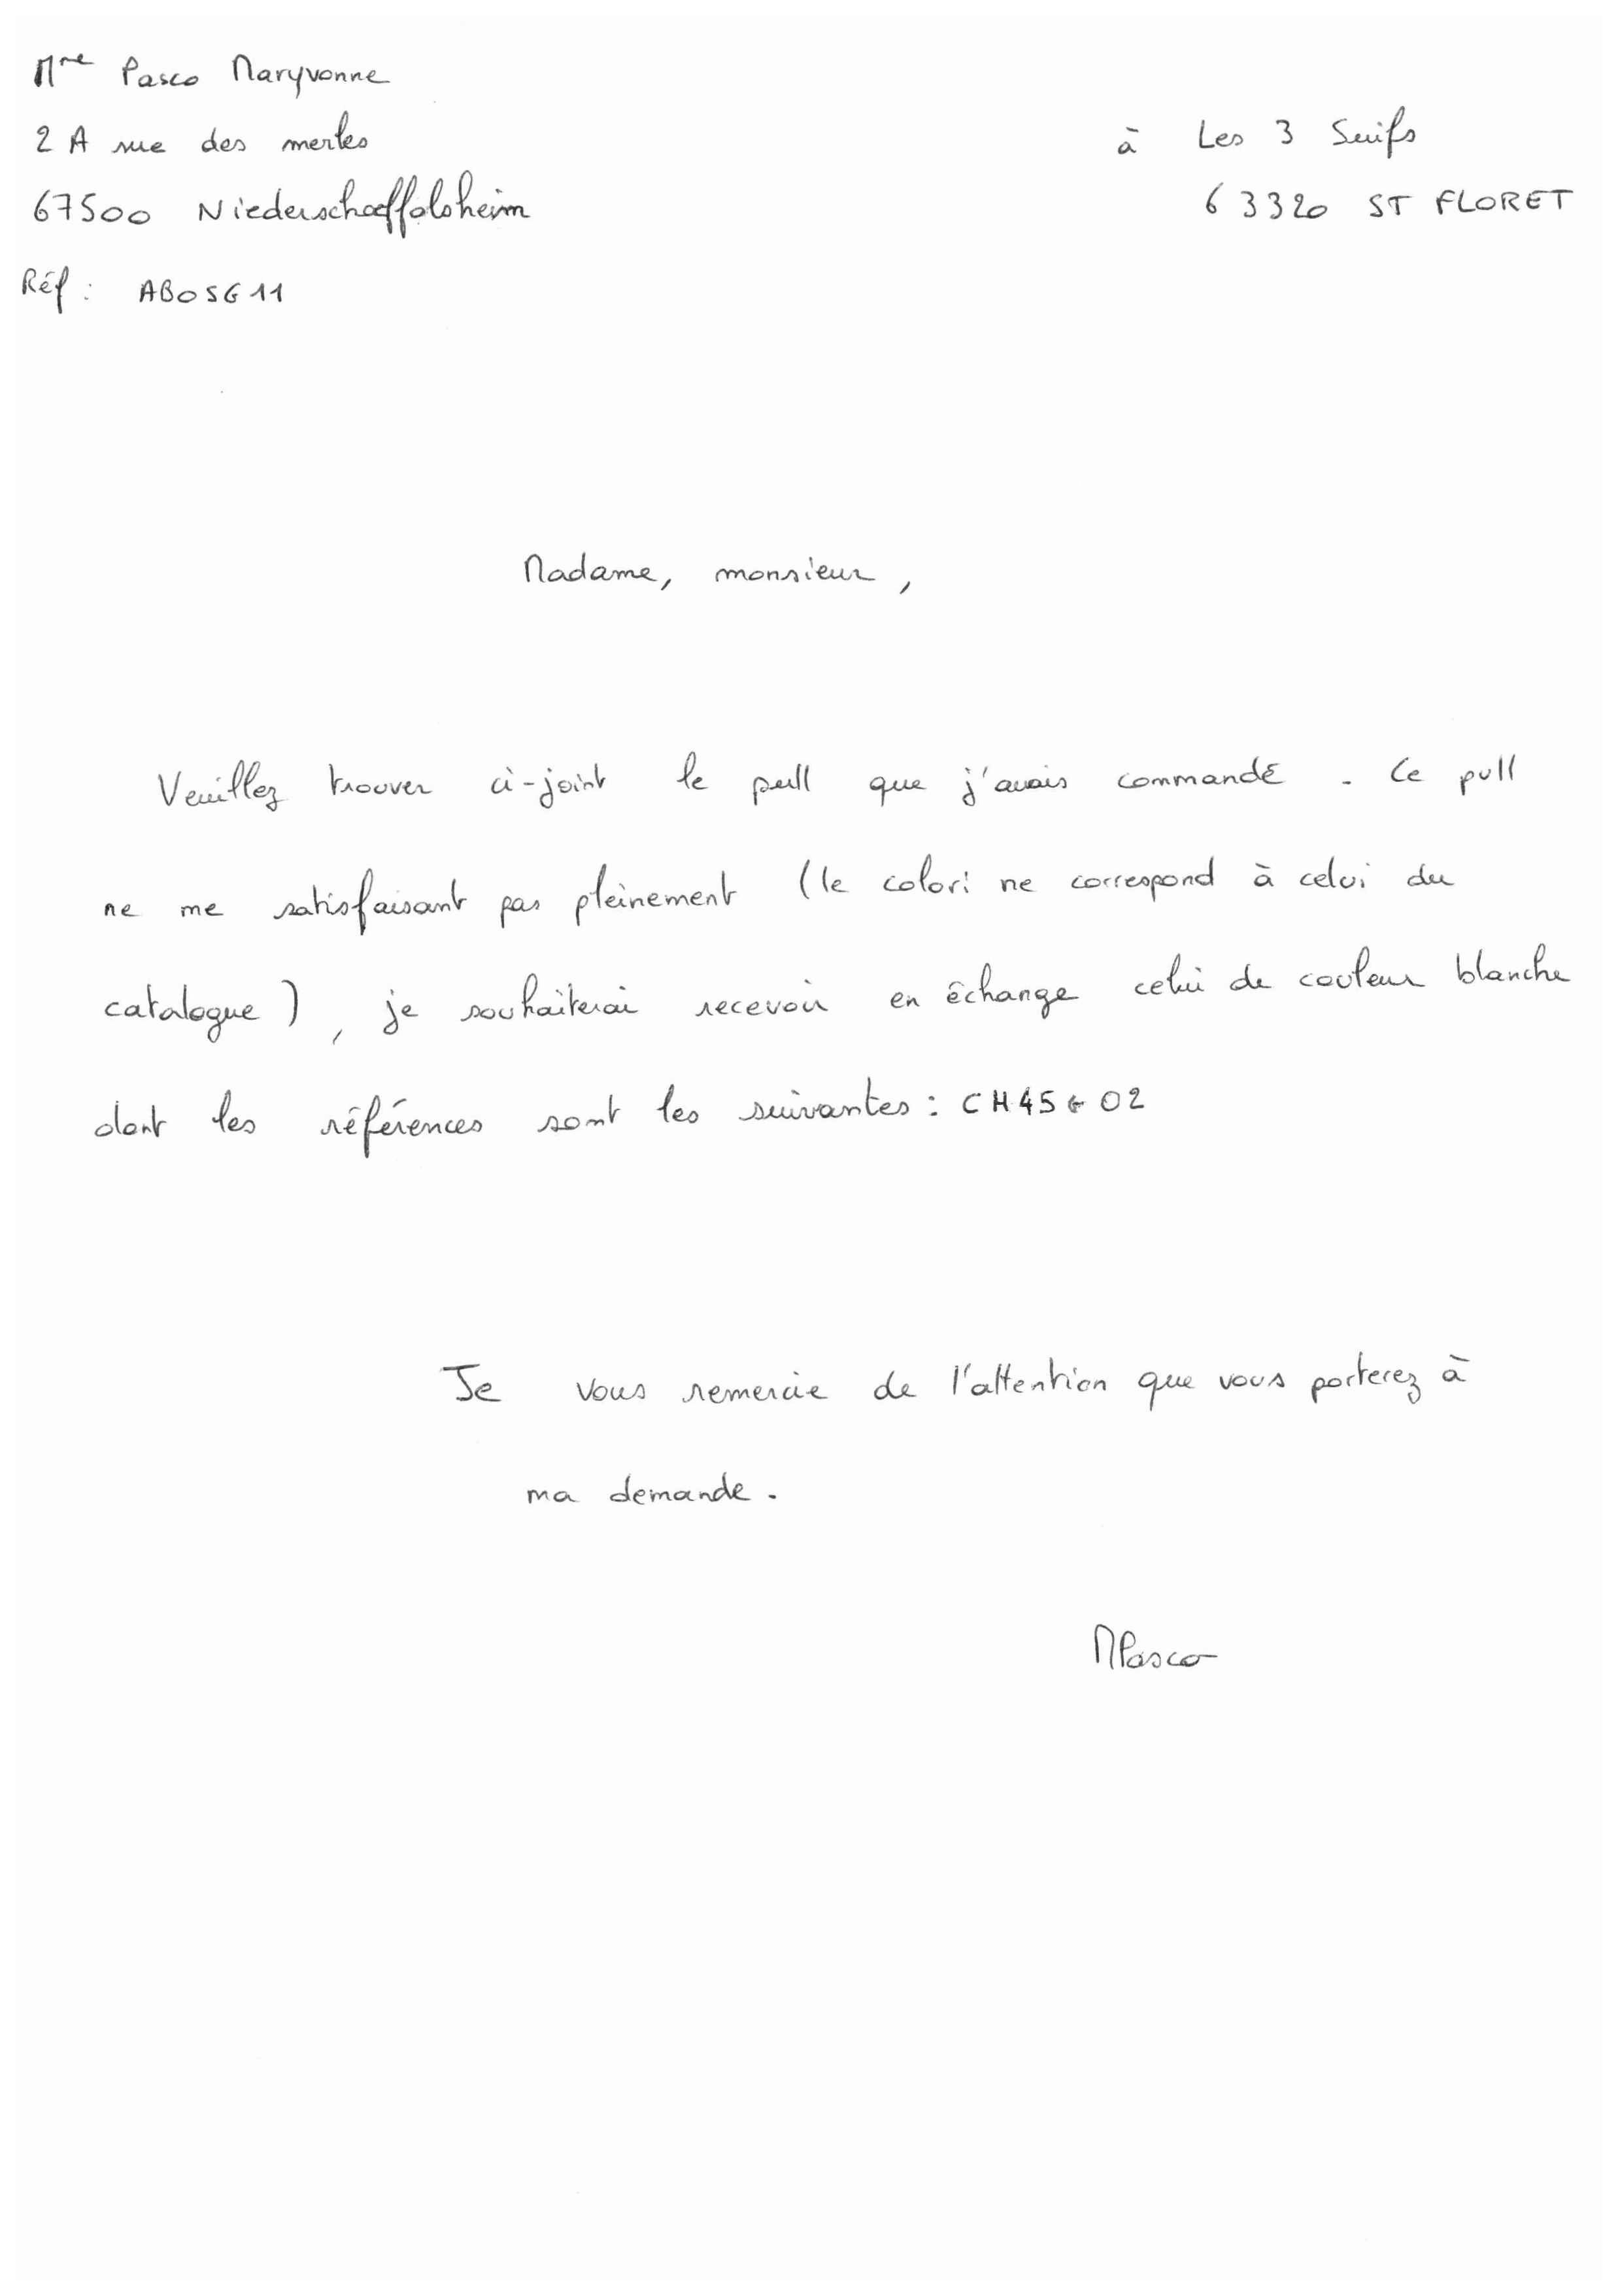 Mme Pasco Maryvonne
2 A rue des merles
67500 Niederschaeffolsheim
à Les 3 Suifs
63320 ST FLORET
Réf : ABOSG11
Madame, monsieur,
Veuillez trouver ci-joint le pull que j'avais commandé. Ce pull
ne me satisfaisant pas pleinement (le colori ne correspond à celui du
catalogue), je souhaiterai recevoir en échange celui de couleur blanche
dont les références sont les suivantes : CH45G02
Je vous remercie de l'attention que vous porterez à
ma demande.
MPasco